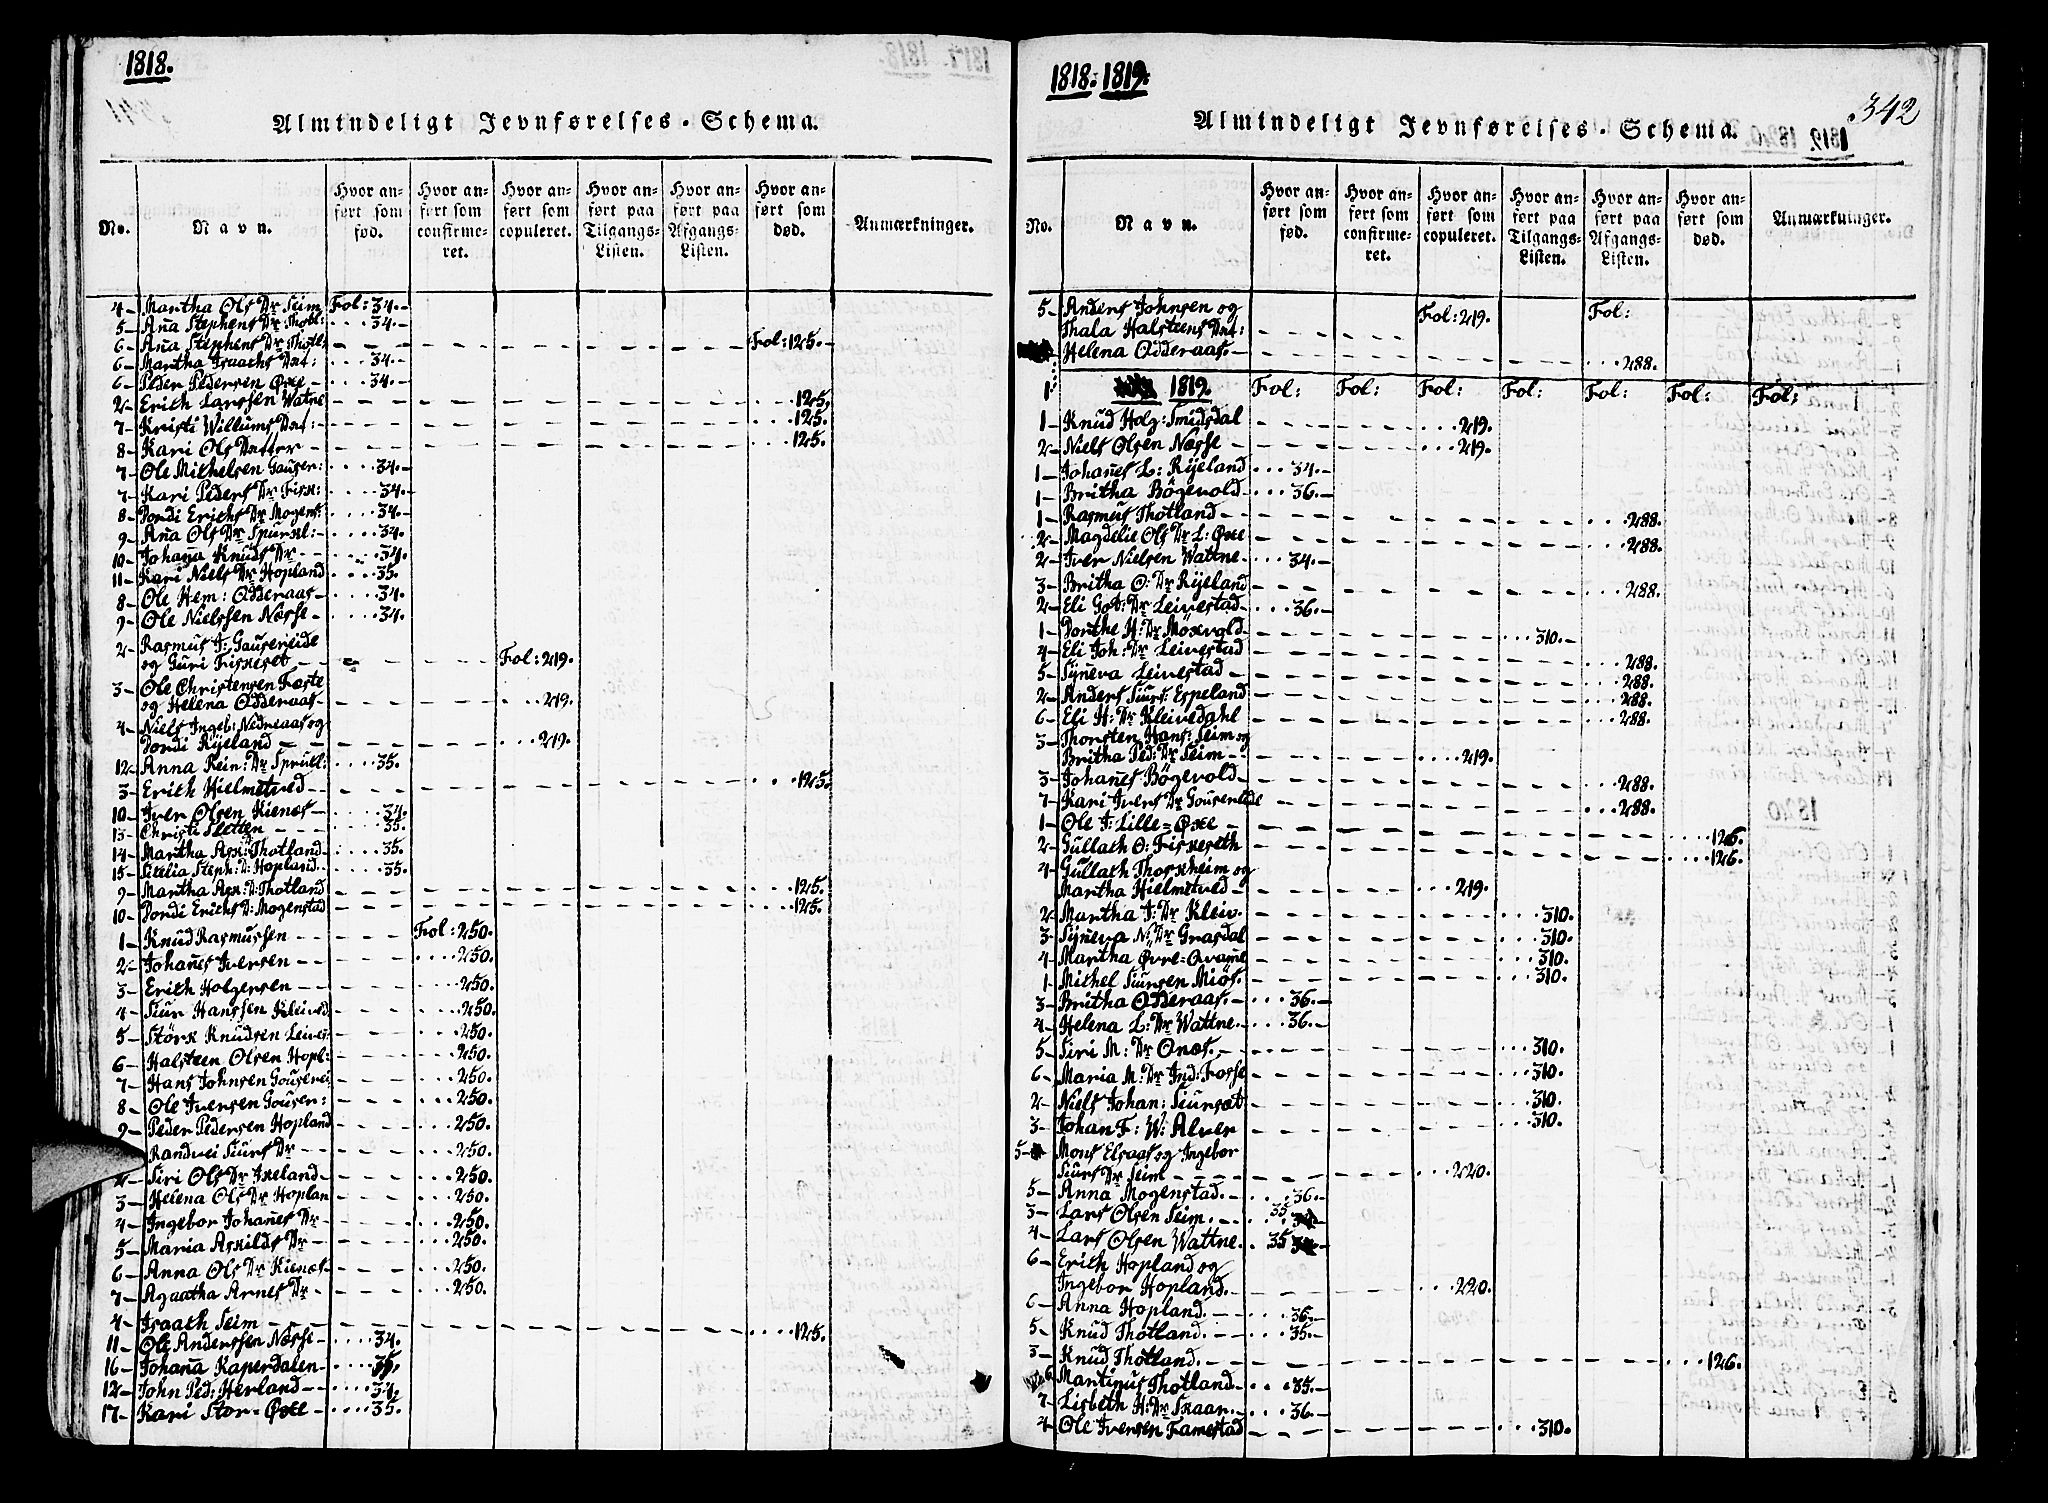 1818.
Almindeligt Jevnførelses-Schema.
No. Navn. Hvor anført som fød. Hvor anført som confirmeret. Hvor anført som copuleret. Hvor anført paa Tilgangs-Listen. Hvor anført paa Afgangs-Listen. Hvor anført som død. Anmærkninger.
4 Martha Ols Dr Seim Fol: 34.
5 Aña Stephens Dr Thotl: 34.
6 Aña Stephens Dr Thotl: Fol: 125.
6 Martha Isaachs Dat: 34.
6 Peder Pedersen Øxe 34.
2 Erich Larssen Watne 125.
7 Kristi Willums Dat: 125.
8 Kari Ols Datter 125.
7 Ole Michelsen Gauser: 34.
7 Kari Peders Dr Fisk: 34.
8 Dordi Erichs Dr Mogens: 34.
9 Aña Ols Dr Spurkl: 34.
10 Johaña Knuds Dr 34.
11 Kari Niels Dr Hopland 35.
8 Ole Hem: Odderaas 34.
9 Ole Nielssen Næsse 34.
2 Rasmus J: Gausereide
og Guri Fiskeset Fol: 219.
3 Ole Christensen Fæste
og Helena Odderaas 219.
4 Niels Ingeb: Nedreaas og
Dordi Ryeland 219.
12 Anna Rein: Dr Spruil: 35.
3 Erich Hielmetved 125.
10 Iver Olsen Kienæs 34.
13 Christi Sletten 35.
14 Martha Ask: Thotland 35.
15 Sicilia Steph: D: Hopland 35.
9 Martha Ask: D: Thotland 125.
10 Dordi Erichs D: Mogenstad 125.
1 Knud Rasmussen Fol: 250.
2 Johañes Iversen 250.
3 Erich Holgersen 250.
4 Siur Hanssen Kleived 250.
5 Störk Knudsen Leives 250.
6 Halsteen Olsen Hopl: 250.
7 Hans Johnsen Gouserei 250.
8 Ole Iversen Gouser: 250.
9 Peder Pedersen Hopland 250.
Randvei Siurs Dr 250.
2 Siri Ols Dr Ixeland 250.
3 Helena Ols Dr Hoplan 250.
4 Ingebor Johañes Dr 250.
5 Maria Askilds Dr 250.
6 Anna Ols Dr Kienæs 250.
7 Agaatha Arnes Dr 250.
4 Isaach Seim 125.
11 Ole Anderssen Næsse 34.
16 Johaña Kaperdalen 35.
12 John Ped: Herland 34.
17 Kari Stor-Øxe 35.
1818. 1819.
342
Almindeligt Jevnførelses-Schema.
No. Navn. Hvor anført som fød. Hvor anført som confirmeret. Hvor anført som copuleret. Hvor anført paa Tilgangs-Listen. Hvor anført paa Afgangs-Listen. Hvor anført som død. Anmærkninger.
5 Anders Johnsen og Fol: 219. Fol:
Thala Halsteens Dat:
Helena Odderaas 288.
1 1819. Fol: Fol: Fol: Fol: Fol: Fol: Fol:
1 Knud Holg: Smidsdal 219.
2 Niels Olsen Næsse 219.
1 Johañes L: Ryeland 34.
1 Britha Bögevold 36.
1 Rasmus Thotland 288.
2 Magdelie Ols Dr L: Øxe 288.
2 Iver Nielsen Wattne 34.
3 Britha O: Dr Ryeland 288.
2 Eli Got: Dr Leivestad 36.
1 Dorthe H: Dr Möxvold 310.
4 Eli Joh: Dr Leivestad 288.
5 Syneva Leivestad 288.
2 Anders Siurs: Espeland 288.
6 Eli H: Dr Kleivedahl 288.
3 Thorsten Hans: Seim og
Britha Ped: Dr Seim 219.
3 Johañes Bögevold 288.
7 Kari Ivers Dr Gousereide 288.
1 Ole J: Lille=Øxe 126.
2 Gullach O: Fiskeseth 126.
4 Gullach Thorsheim og
Martha Hielmetved 219.
2 Martha J: Dr Kleiv. 310.
3 Syneva N: Dr Grasdal 310.
4 Martha Øvre=Qvame 310.
1 Michel Siursen Miös. 310.
3 Britha Odderaas 36.
4 Helena L: Dr Wattne 36.
5 Siri M: Dr Onæs 310.
6 Maria M: Dr Ind: Fosse 310.
2 Niels Johan: Siursæt 310.
3 Johan F: W: Alver 310.
5 Mons Elsaas og Ingebor
Siurs Dr Seim 220.
5 Anna Mogenstad 36.
3 Lars Olsen Seim 35
4 Lars Olsen Wattne 35
6 Erich Hopland og
Ingebor Hopland 220.
6 Anna Hopland 36.
5 Knud Thotland 35.
3 Knud Thotland 126.
6 Martinus Thotland 35.
7 Lisbeth H: Dr Skaar 36.
4 Ole Iversen Famestad 310.